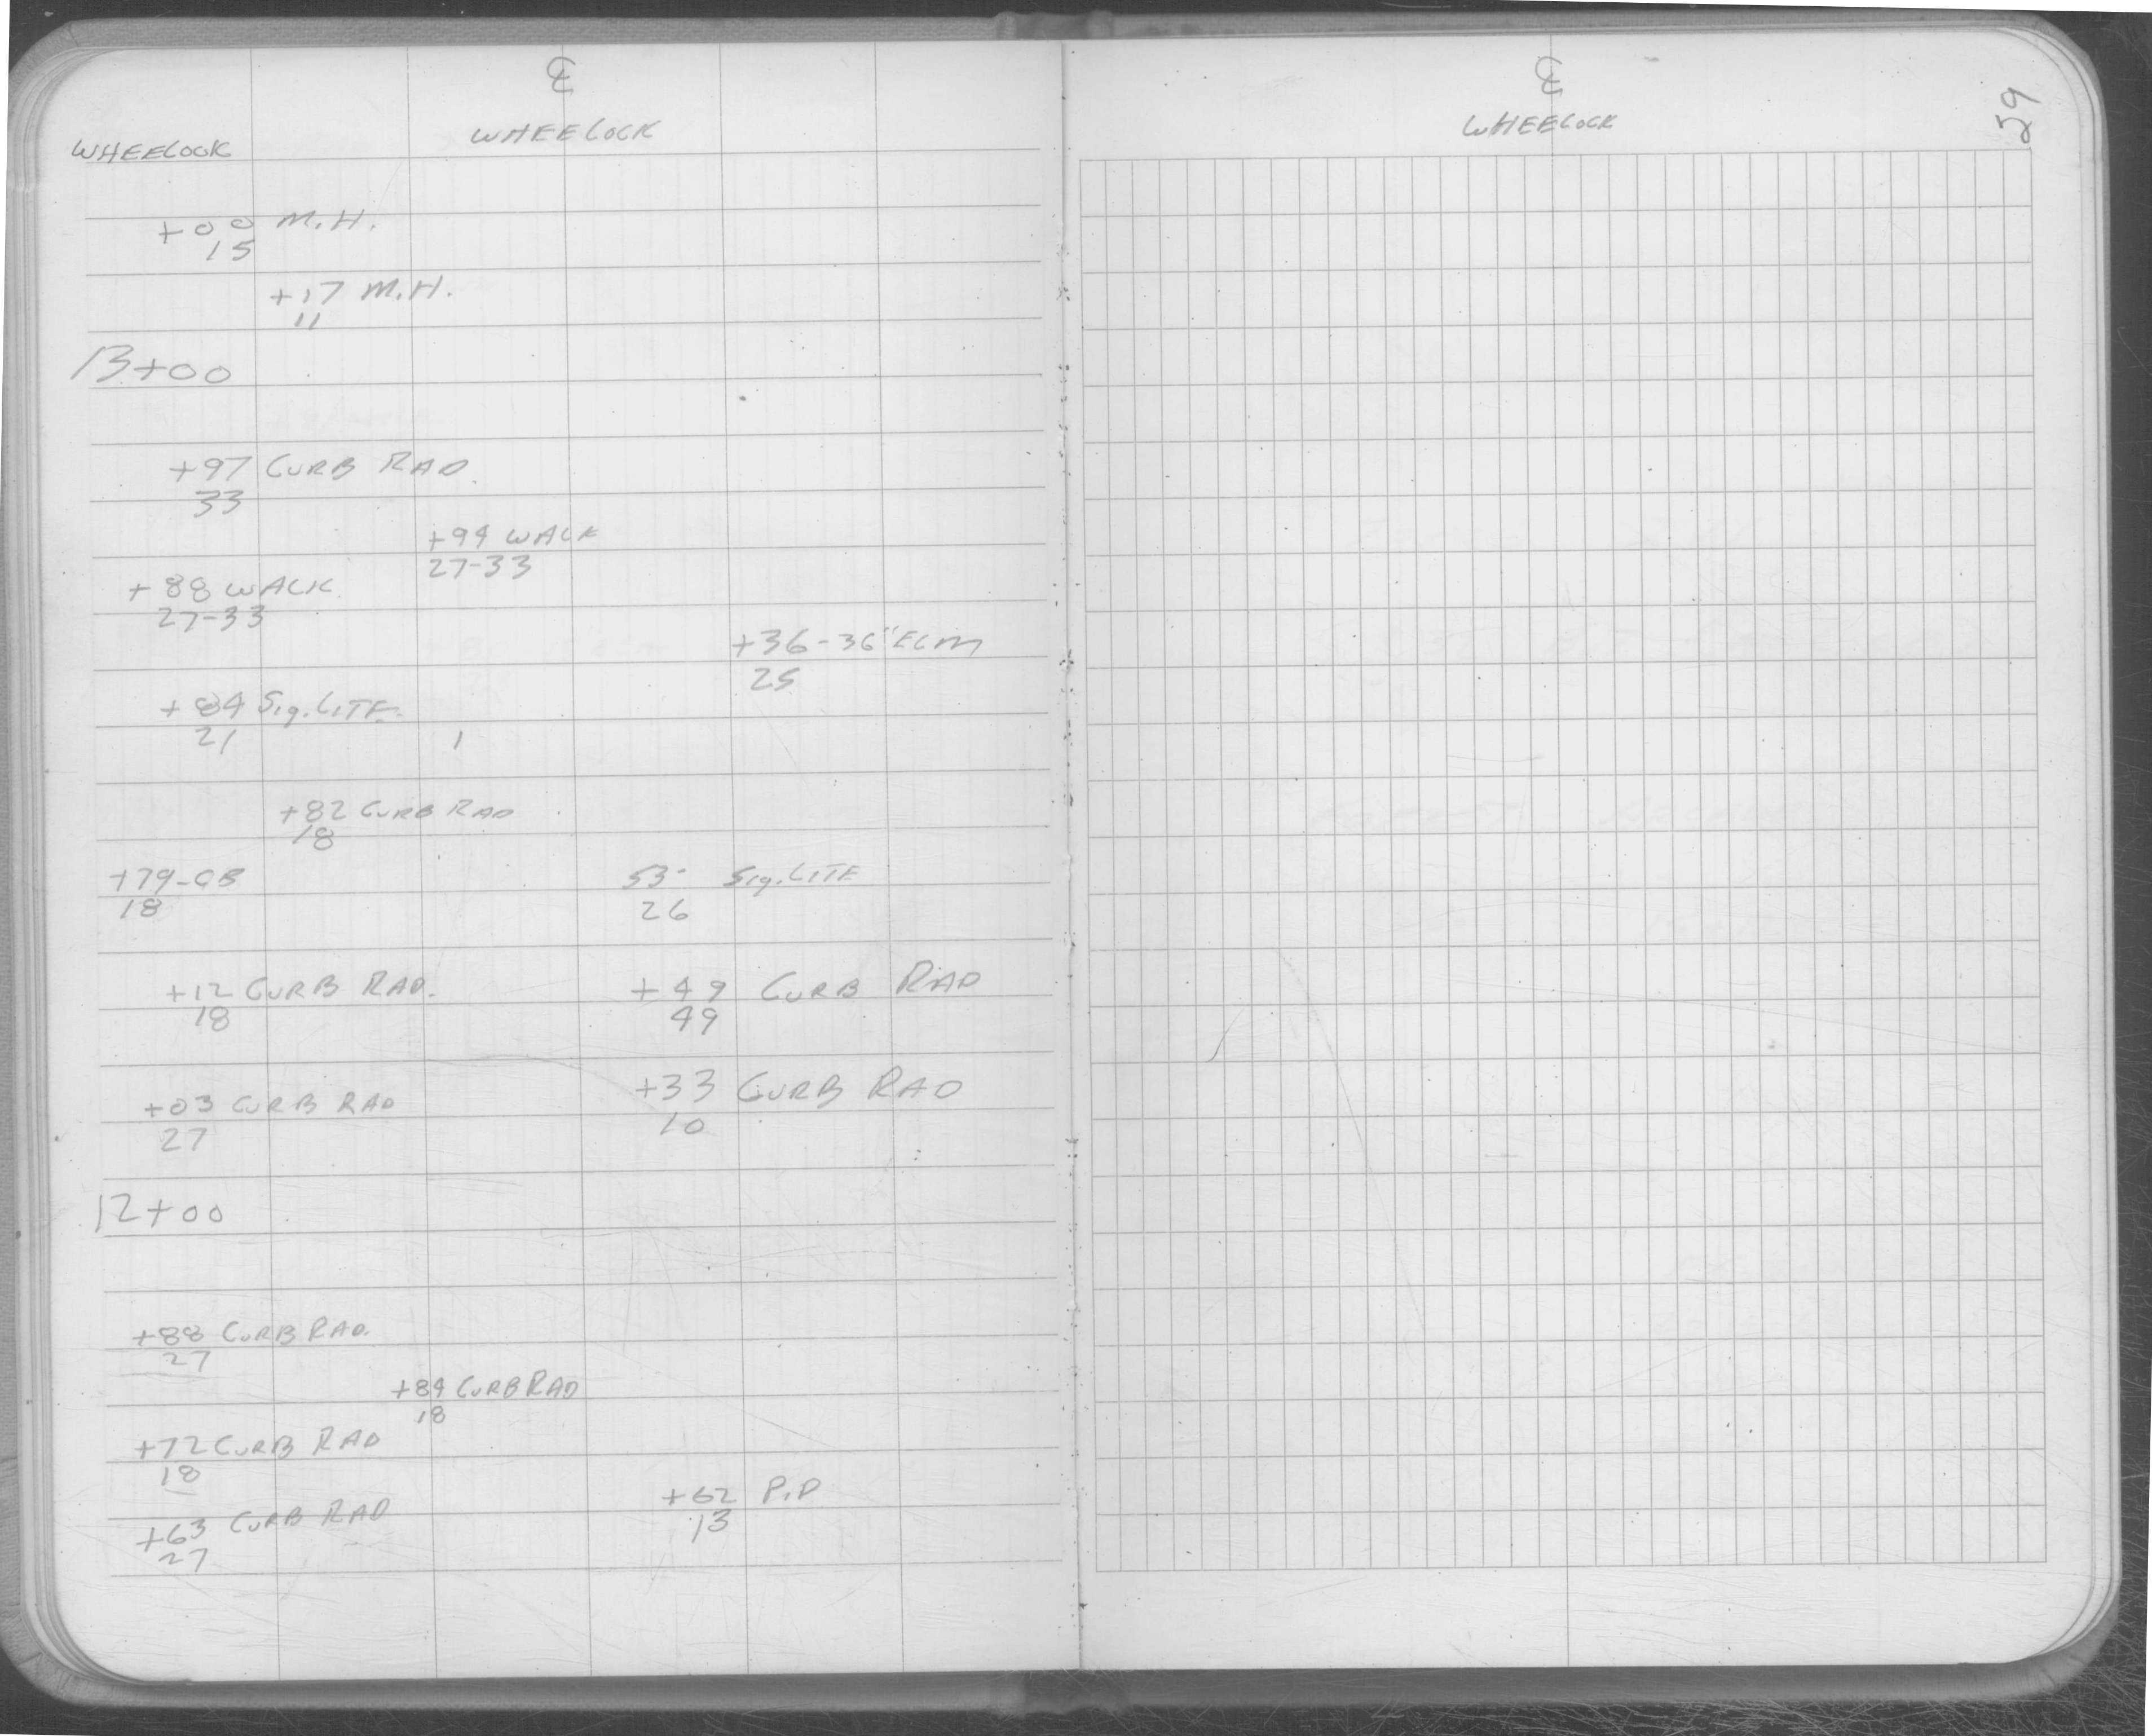 ℄
WHEELOCK
WHEELOCK
+00 M.H.
15
+17 M.H.
11
13+00
+97 CURB RAD.
33
+94 WALK
27-33
+88 WALK
27-33
+36-36" ELM
25
+84 Sig. LITE
21
1
+82 CURB RAD
18
+79-CB
18
53- Sig. LITE
26
+12 CURB RAD.
18
+49 CURB RAD
49
+03 CURB RAD
27
+33 CURB RAD
10
12+00
+88 CURB RAD.
27
+84 CURB RAD
18
+72 CURB RAD
18
+62 P.P
13
+63 CURB RAD
27
℄
WHEELOCK
29